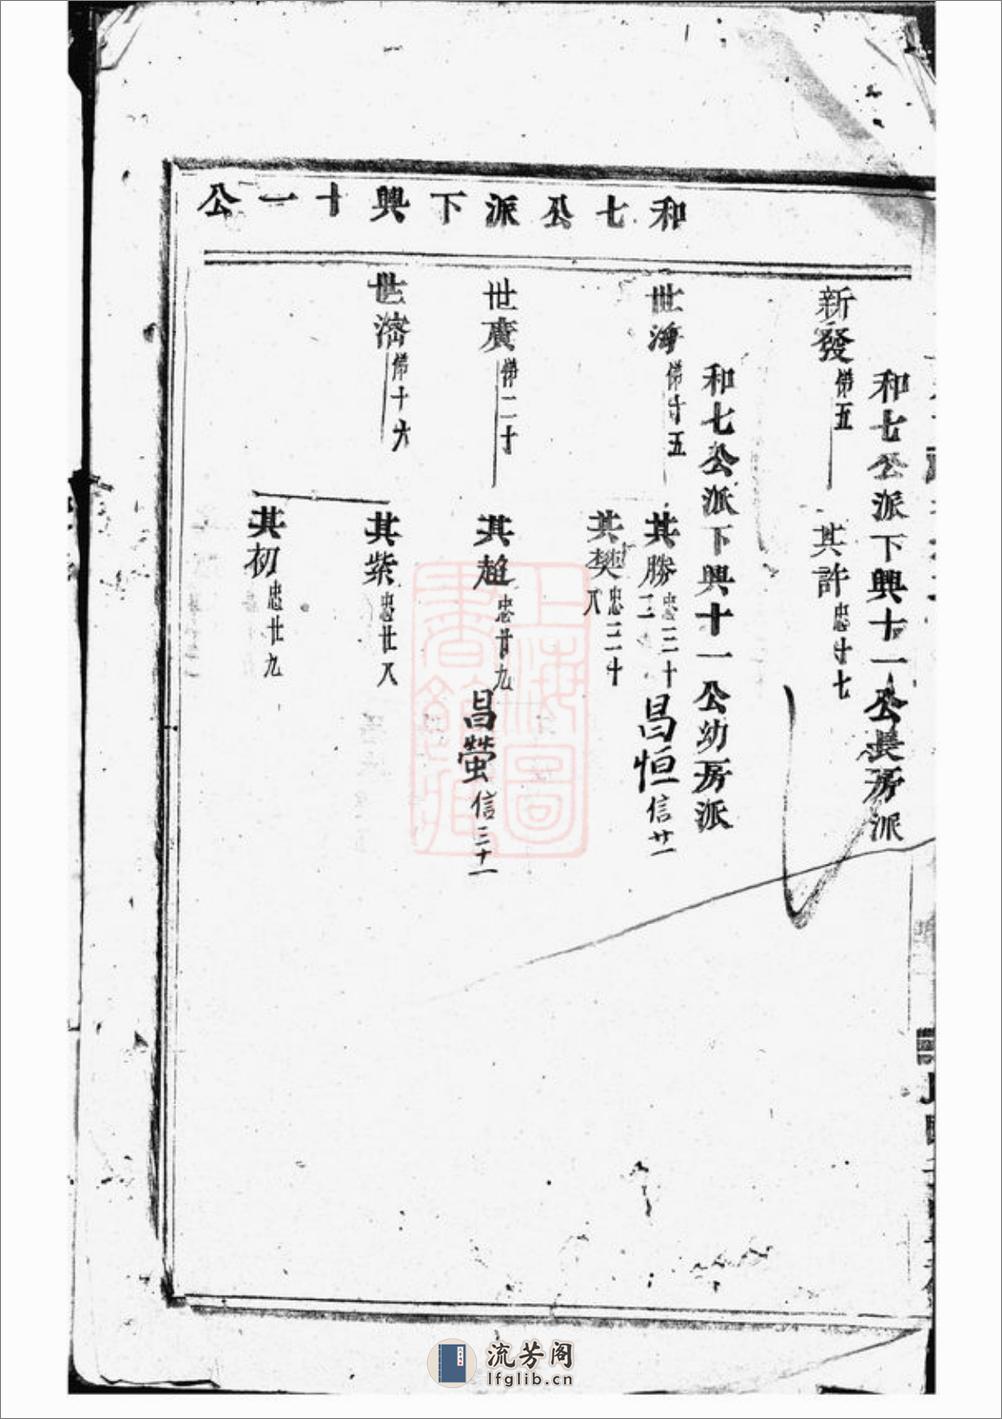 和七公派下興十一公
和七公派下興十一公長房派
新發 悌五
其許 忠十七
和七公派下興十一公幼房派
世海 悌十五
其勝 忠二十二
昌恒 信廿一
其樊 忠二十八
世廣 悌二十
其趨 忠廿九
昌螢 信三十一
世濟 悌十六
其紫 忠廿八
其初 忠廿九
上海圖書館藏
流芳阁
lfglib.cn